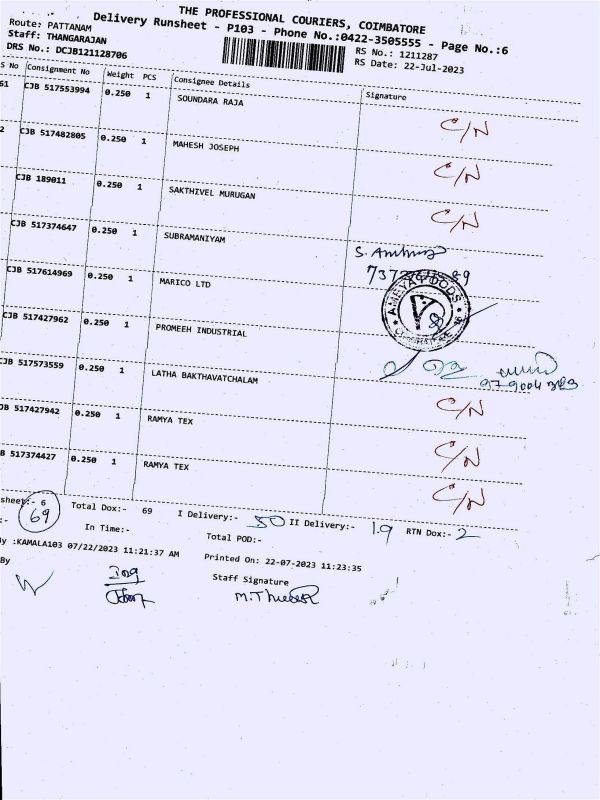 THE PROFESSIONAL COURIERS, COIMBATORE
Delivery Runsheet - P103 - Phone No.:0422-3505555 - Page No.:6
Route: PATTANAM
Staff: THANGARAJAN
DRS No.: DCJB121128706
RS No.: 1211287
RS Date: 22-Jul-2023
S No Consignment No Weight PCS Consignee Details Signature
61 CJB 517553994 0.250 1 SOUNDARA RAJA C/N
2 CJB 517482805 0.250 1 MAHESH JOSEPH C/N
CJB 189011 0.250 1 SAKTHIVEL MURUGAN C/N
CJB 517374647 0.250 1 SUBRAMANIYAM
CJB 517614969 0.250 1 MARICO LTD
CJB 517427962 0.250 1 PROMEEH INDUSTRIAL
CJB 517573559 0.250 1 LATHA BAKTHAVATCHALAM C/N
JB 517427942 0.250 1 RAMYA TEX C/N
B 517374427 0.250 1 RAMYA TEX C/N
sheet:- 6 Total Dox:- 69 I Delivery:- 50 II Delivery:- 19 RTN Dox:- 2
69
:- In Time:- Total POD:-
y :KAMALA103 07/22/2023 11:21:37 AM Printed On: 22-07-2023 11:23:35
By Staff Signature